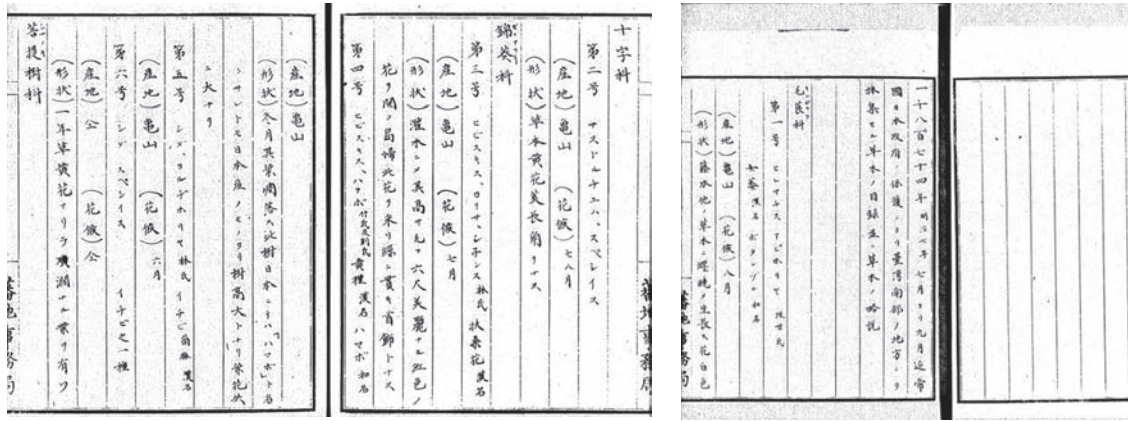 一千八百七十四年明治七年七月ヨリ九月迄帝
國日本政府ノ保護ニヨリ臺湾南部ノ地方ニヨリ
採集セル草木ノ目録並ニ草木ノ略説
毛莨科
第一号
女萎 漢名 ボタンヅル 和名
(産地)亀山 (花候)八月
(形状)藤本他ノ草木ニ纒繞シ生長ス花白色
蕃地事務局
十字科
第二号 ナストルチユム、スペシイス
(産地)亀山 (花候)七八月
(形状)草本黄花美長角ヲナス
錦葵科
第三号 ヒビスキス、ロサ、シナンシス 林氏 扶桑花 漢名
(産地)亀山 (花候)七月
(形状)灌木ニメ其高サ凡ソ六尺美麗ナル紅色ノ
花ヲ開ク島婦此花ヲ采リ線ニ貫キ首飾トナス
第四号 ヒビスキス、 黄槿 漢名 ハマボ 和名
蕃地事務局
(産地)亀山
(形状)冬月其葉凋落ス此樹日本ニテハ「ハマボ」ト名
日本産ノモノヨリ樹高大トナリ葉花状
ニ大ナリ
第五号 シダ、 林氏 イチビ 漢名
(産地)亀山 (花候)六月
第六号 シダ スペシイス イチビ之一種
(産地)仝 (花候)仝
(形状)一年草黄花ナリ 濶ナル葉ヲ有ツ
菩提樹科